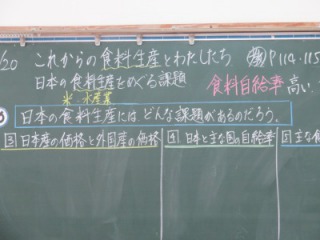 20 これからの食料生産とわたしたち 教P114.115
日本の食料生産をめぐる課題
米 水産業
食料自給率 高い
日本の食料生産には どんな課題があるのだろう。
3 日本産の価格と外国産の価格
4 日本と主な国の自給率
主な食